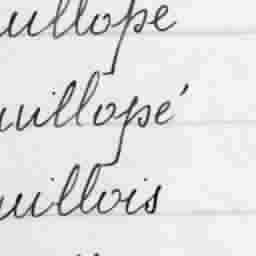 uillope
uillope'
uillois